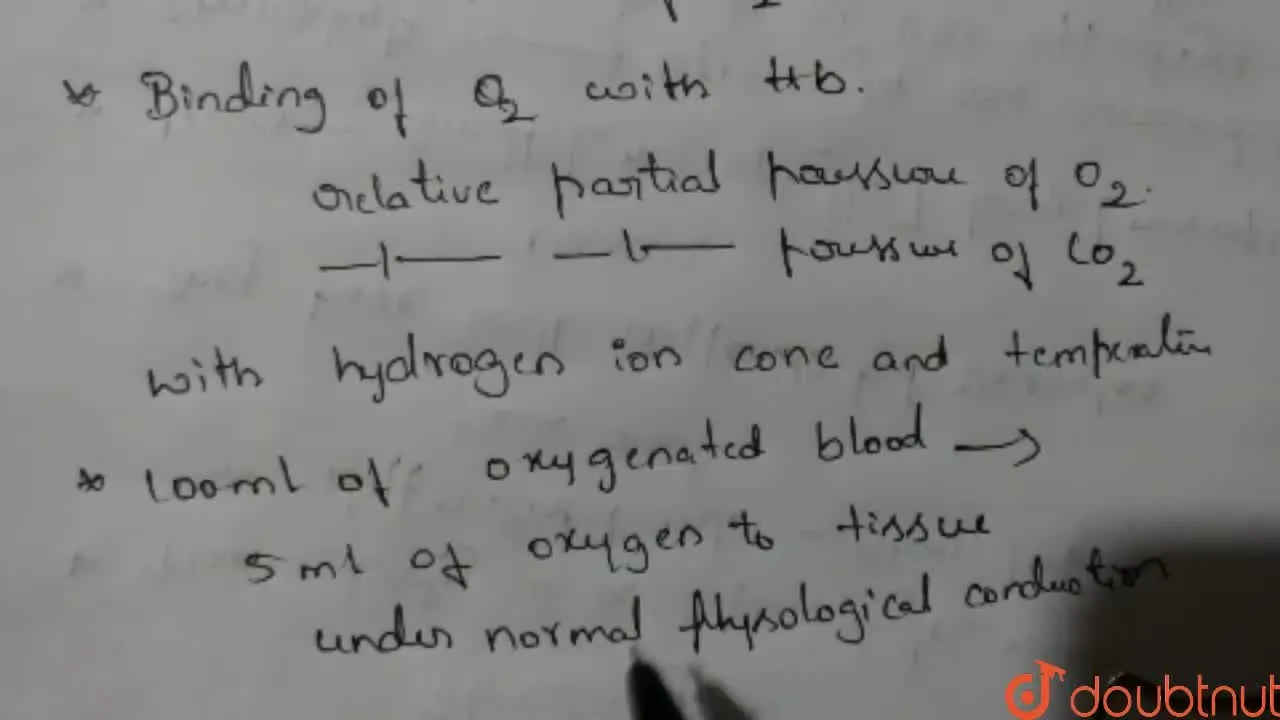 * Binding of O2 with Hb.
relative partial pressure of O2.
—|— —|— pressure of CO2
with hydrogen ion conc and temperature
* 100ml of oxygenated blood →
5 ml of oxygen to tissue
under normal physological conduction
doubtnut